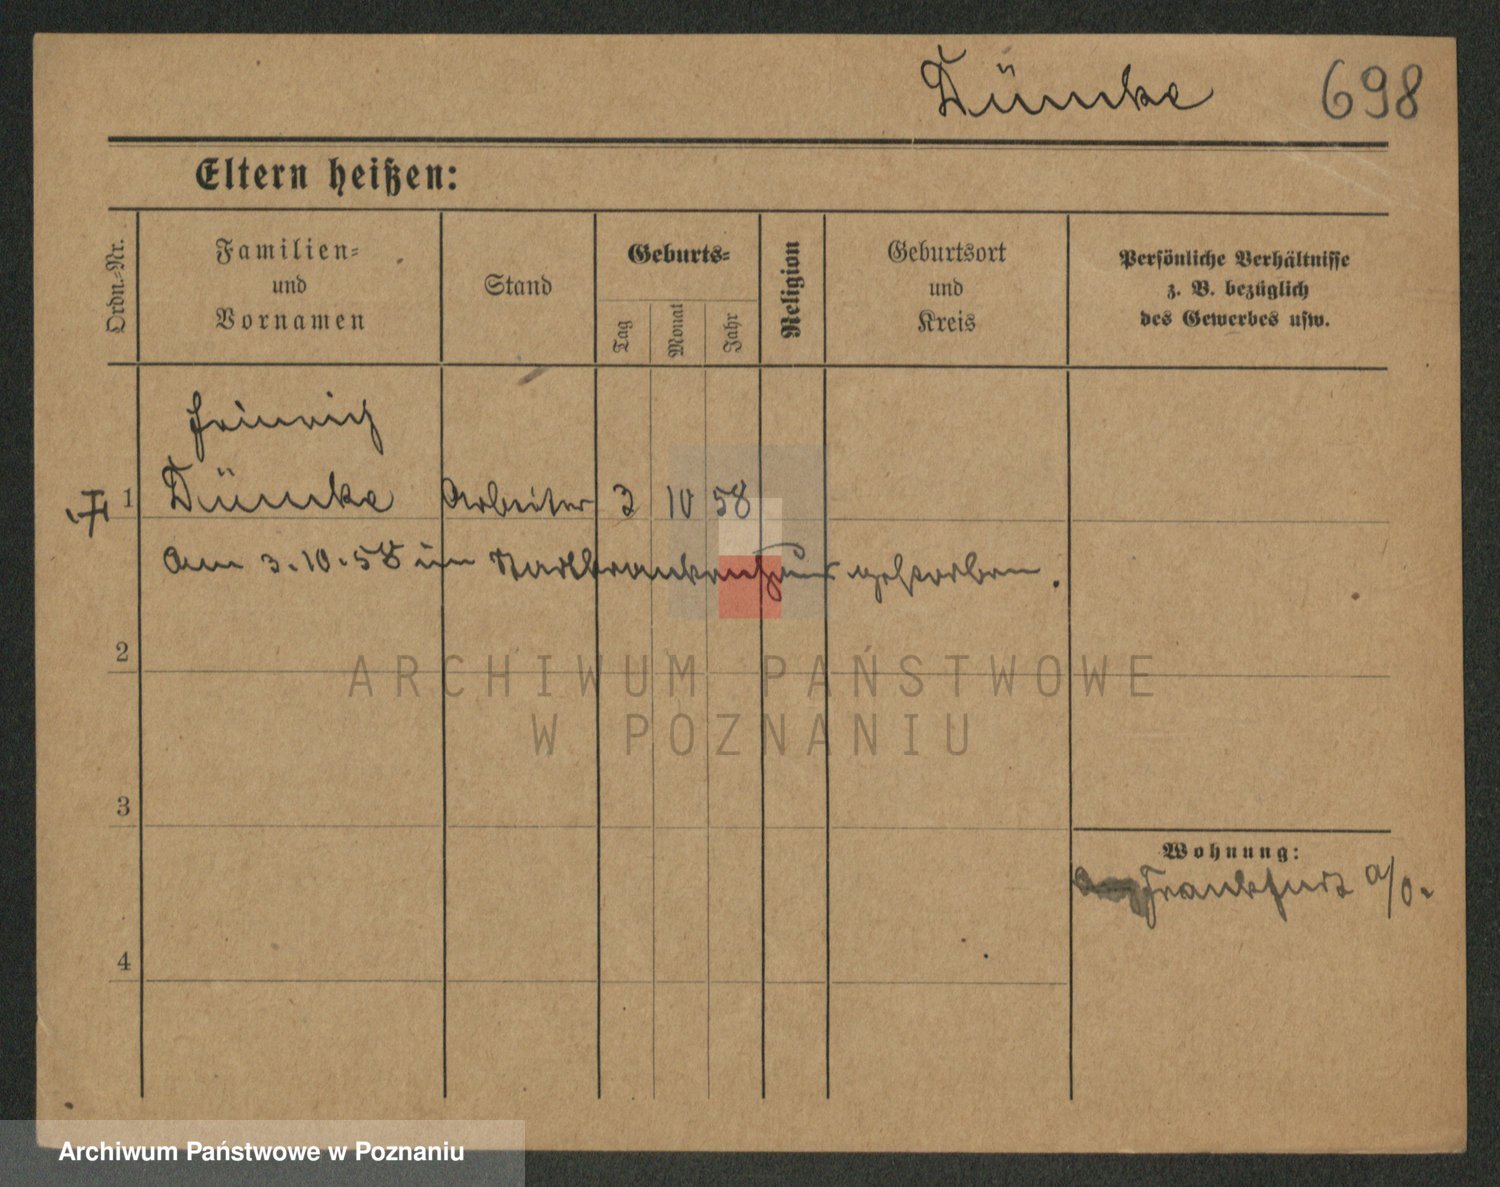 Dümke 698
Eltern heißen:
Ordn.-Nr.
Familien-
und
Vornamen
Stand
Geburts-
Tag
Monat
Jahr
Religion
Geburtsort
und
Kreis
Persönliche Verhältnisse
z. B. bezüglich
des Gewerbes usw.
Heinrich
1 Dümke Arbeiter 3 10 58
Am 3.10.58 im Stadtkrankenhaus gestorben.
2
ARCHIWUM PAŃSTWOWE
W POZNANIU
3
Wohnung:
Frankfurt a/O.
4
Archiwum Państwowe w Poznaniu